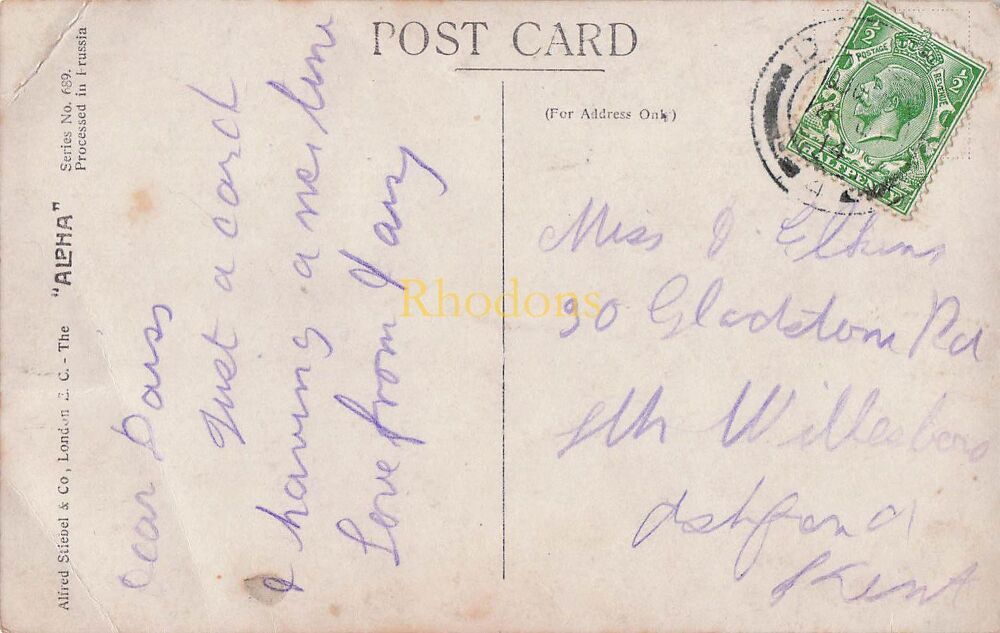 POST CARD
(For Address Only)
Alfred Stiebel & Co, London E. C. - The "ALPHA" Series No. 689.
Processed in Prussia
Dear
Just a card
I having a
Love from
Miss J Elkins
90 Gladstone Rd
Sth Willesboro
Ashford
Kent
½ ½
POSTAGE REVENUE
HALFPENNY
14
Rhodons